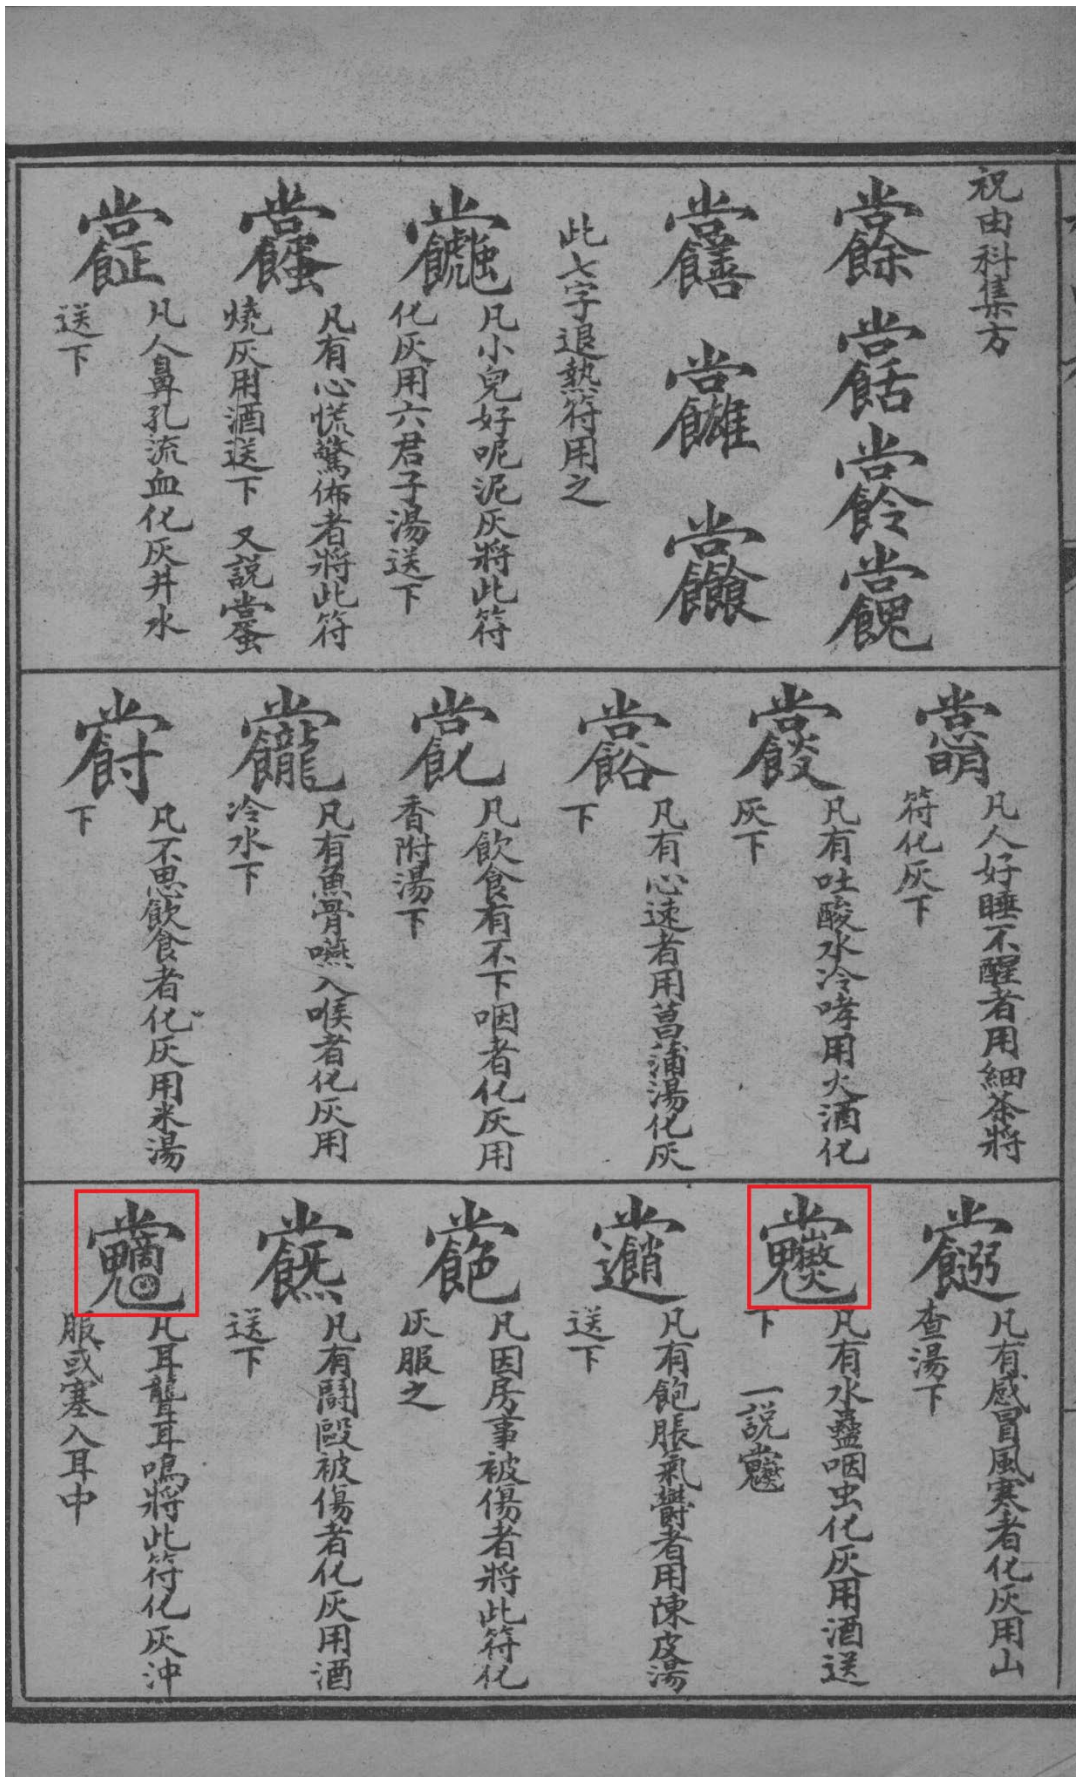 祝由科集方
此七字退熱符用之
凡小兒好呢泥灰將此符
化灰用六君子湯送下
凡有心慌驚佈者將此符
燒灰用酒送下 又説
凡人鼻孔流血化灰井水
送下
凡人好睡不醒者用細茶將
符化灰下
凡有吐酸水冷哮用火酒化
灰下
凡有心速者用菖蒲湯化灰
下
凡飲食有不下咽者化灰用
香附湯下
凡有魚骨嚥入喉者化灰用
冷水下
凡不思飲食者化灰用米湯
下
凡有感冒風寒者化灰用山
查湯下
凡有水蠱咽虫化灰用酒送
下 一説
凡有飽脹氣欝者用陳皮湯
送下
凡因房事被傷者將此符化
灰服之
凡有鬪毆被傷者化灰用酒
送下
凡耳聾耳鳴將此符化灰沖
服或塞入耳中